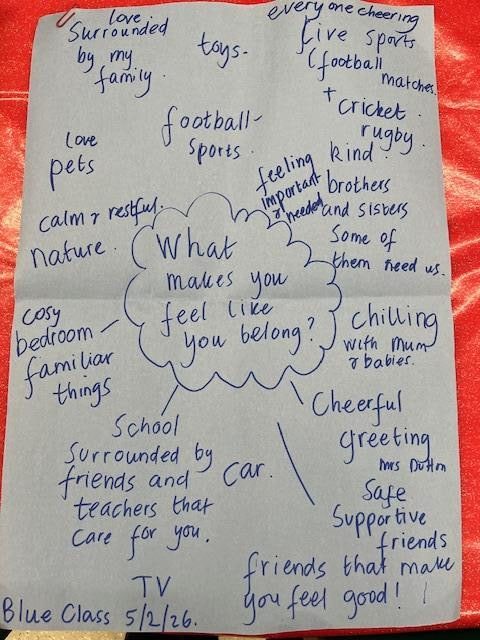 love
Surrounded
by my
family.
toys.
everyone cheering
Live sports
(football
matches.
+ cricket.
rugby.
football-
sports.
love
pets
kind
brothers
and sisters
Some of
them need us.
feeling
important
& needed
calm & restful.
nature.
What
makes you
feel like
you belong?
cosy
bedroom
familiar
things
chilling
with mum
& babies.
School
Surrounded by
friends and
teachers that
care for you.
car.
Cheerful
greeting
Mrs Dutton
Safe
Supportive
friends
friends that make
you feel good!
TV
Blue Class 5/2/26.